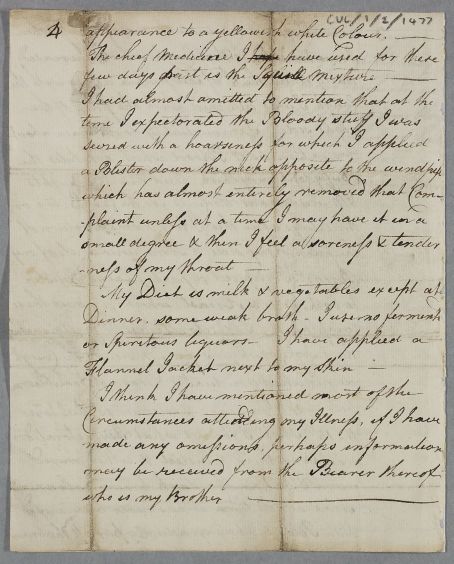 4 CUL/1/2/1477
appearance to a yellowish white Colour. —
The chief Medicine I have used for these
few days past is the Squill mixture —
I had almost omitted to mention that at the
time I expectorated the Bloody stuff I was
seized with a hoarseness for which I applied
a Blister down the neck opposite to the windpipe
which has almost entirely removed that Com-
-plaint unless at a time I may have it in a
small degree & then I feel a soreness & tender
-ness of my throat —
My Diet is milk & vegetables except at
Dinner. some weak broth - I use no ferment
or Spiritous liquors - I have applied a
Flannel Jacket next to my skin —
I think I have mentioned most of the
Circumstances attending my Illness, if I have
made any omissions, perhaps information
may be received from the Bearer thereof
who is my Brother —